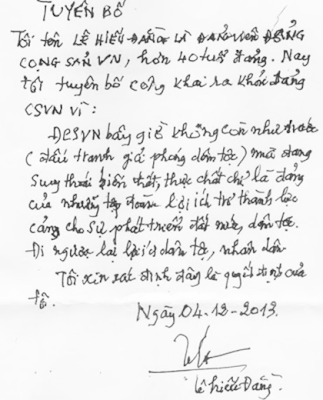 TUYÊN BỐ
Tôi tên LÊ HIẾU ĐẰNG LÀ ĐẢNG VIÊN ĐẢNG
CỘNG SẢN VN, hơn 40 tuổi đảng. Nay
tôi tuyên bố công khai ra khỏi đảng
CSVN vì:
ĐCSVN bây giờ không còn như trước
(đấu tranh giải phóng dân tộc) mà đang
suy thoái biến chất, thực chất chỉ là đảng
của những tập đoàn lợi ích trở thành lực
cảng cho sự phát triển đất nước, dân tộc.
Đi ngược lại lợi ích dân tộc, nhân dân
Tôi xin xác định đây là quyết định của
tôi.
Ngày 04-12-2013.
Lê Hiếu Đằng